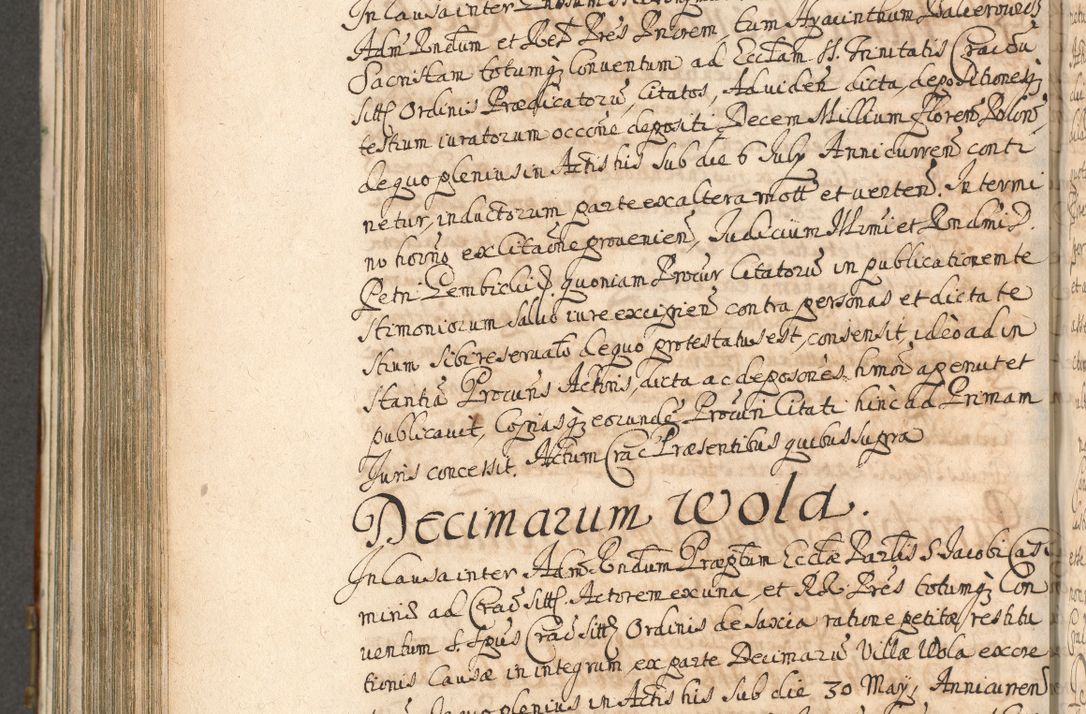 In Causa inter
Adm Rndum et Red Pres Priorem tum Hyacinthum Balierowicz
Sacristam totumq Conventum ad Ecclam SS. Trinitatis Crac: in
sitt Ordinis Prædicatoru, Citatos, Ad viden dicta, depositionesq
testium iuratorum occone depositi Decem Millium Floren Polon,
de quo plenius in Actis his sub die 6 July Anni curren conti
netur, inductorum parte ex altera mott et verten. In termi
no horno ex Citaone provenien, Judicium Illrmi et Rndmi D.
Petri Gembicki D. quoniam Procur Citatoru in publicationem te
stimoniorum salvo iure excipien contra personas et dicta te
stium sibi reservato de quo protestatus est, consensit, ideo ad in
stantia Procuris Actoris, dicta ac deposones timon aperuit et
publicavit, Copiasq eorunde Procuri Citati hinc ad Primam
Juris concessit. Actum Crac Præsentibus quibus supra
Decimarum Wola.
In Causa inter Adm Rndum Præptum Ecclæ Parlis S. Jacobi Casi
miriæ ad Crac sitt. Actorem ex una, et RR. Pres totumq Con
ventum S. Spus Crac sitt Ordinis de Saxia ratione petitæ restitu
tionis Causæ in integrum, ex parte Decimaru Villæ Wola excre
plenius in Actis his sub die 30 May, Anni curren